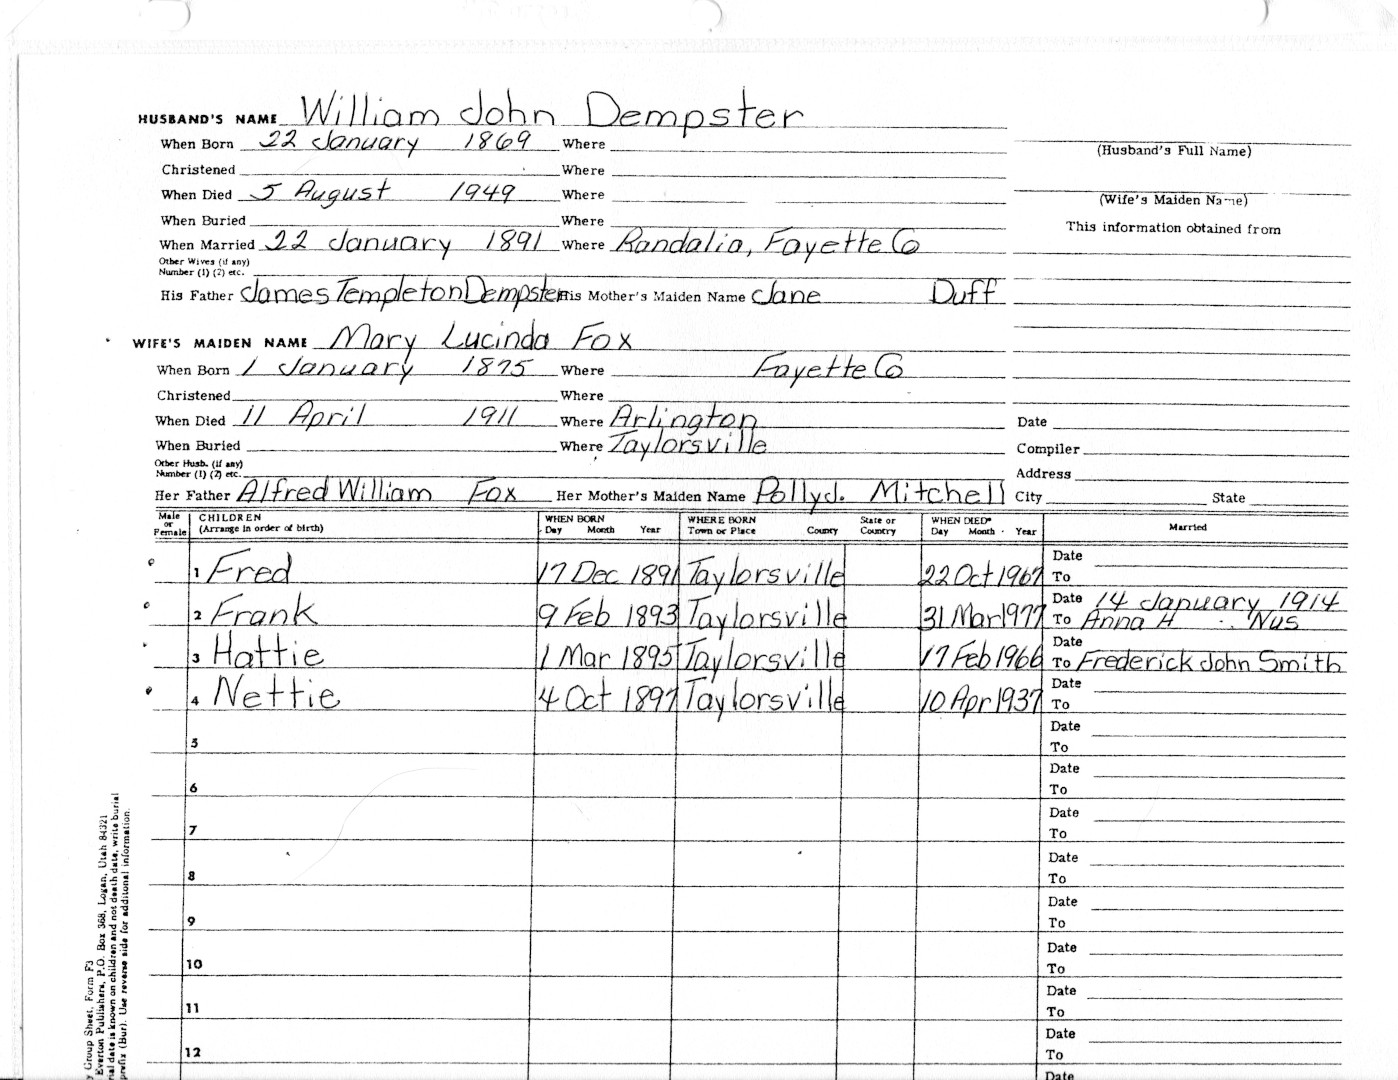 HUSBAND'S NAME William John Dempster
When Born 22 January 1869 Where
(Husband's Full Name)
Christened Where
When Died 5 August 1949 Where
(Wife's Maiden Name)
When Buried Where
This information obtained from
When Married 22 January 1891 Where Randalia, Fayette Co
Other Wives (if any)
Number (1) (2) etc.
His Father James Templeton Dempster His Mother's Maiden Name Jane Duff
WIFE'S MAIDEN NAME Mary Lucinda Fox
When Born 1 January 1875 Where Fayette Co
Christened Where
When Died 11 April 1911 Where Arlington
Date
When Buried Where Taylorsville
Compiler
Other Husb. (if any)
Number (1) (2) etc.
Address
Her Father Alfred William Fox Her Mother's Maiden Name Polly J. Mitchell
City State
Male or Female CHILDREN (Arrange in order of birth) WHEN BORN Day Month Year WHERE BORN Town or Place County State or Country WHEN DIED* Day Month Year Married
1 Fred 17 Dec 1891 Taylorsville 22 Oct 1967 Date
To
2 Frank 9 Feb 1893 Taylorsville 31 Mar 1977 Date 14 January 1914
To Anna H Nus
3 Hattie 1 Mar 1895 Taylorsville 17 Feb 1966 Date
To Frederick John Smith
4 Nettie 4 Oct 1897 Taylorsville 10 Apr 1937 Date
To
5 Date
To
6 Date
To
7 Date
To
8 Date
To
9 Date
To
10 Date
To
11 Date
To
12 Date
To
Date
y Group Sheet, Form F3
Everton Publishers, P.O. Box 368, Logan, Utah 84321
ial date is known on children and not death date, write burial
prefix (Bur). Use reverse side for additional information.